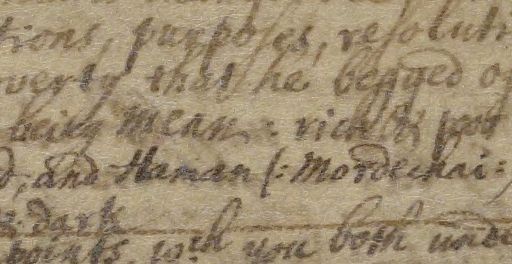 tions, purposes, resoluti
verty that he begged of
being mean: rich & poor
d, and Haman (: Mordechai:
& dark
points, wch you both unde